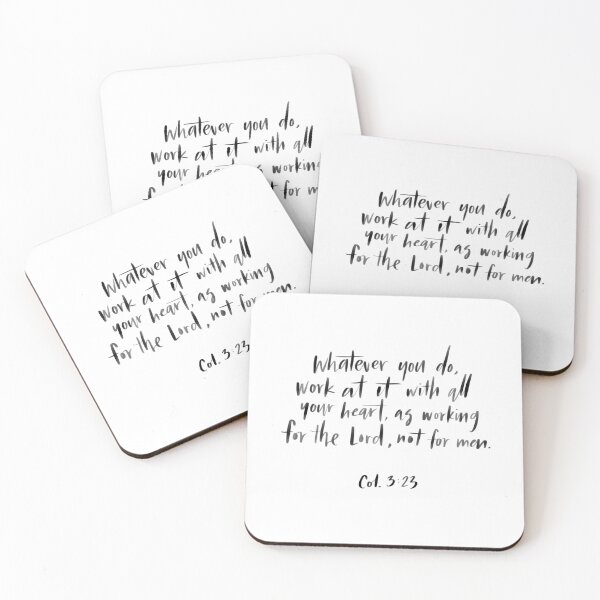 Whatever you do,
work at it with all
your heart, as working
for men
Whatever you do,
work at it with all
your heart, as working
for the Lord, not for men.
Whatever you do,
work at it with all
your heart, as working
for the Lord, not for men.
Col. 3:23
Whatever you do,
work at it with all
your heart, as working
for the Lord, not for men.
Col. 3:23